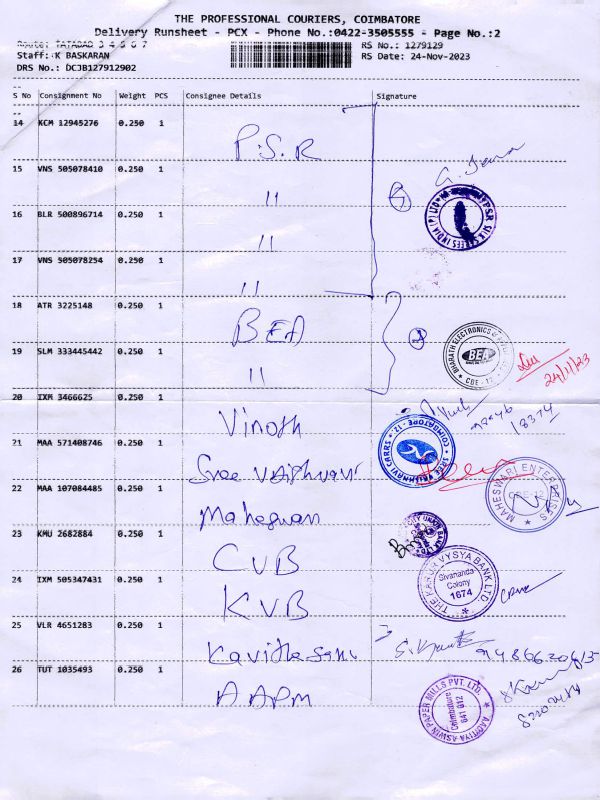 THE PROFESSIONAL COURIERS, COIMBATORE
Delivery Runsheet - PCX - Phone No.:0422-3505555 - Page No.:2
Route: TATABAD 3 4 6 0 7
Staff: K BASKARAN
DRS No.: DCJB127912902
RS No.: 1279129
RS Date: 24-Nov-2023
S No Consignment No Weight PCS Consignee Details Signature
14 KCM 12945276 0.250 1
P.S.R
15 VNS 505078410 0.250 1
G.
"
16 BLR 500896714 0.250 1
PSR SILK SAREES INDIA (P) LTD
"
17 VNS 505078254 0.250 1
"
18 ATR 3225148 0.250 1
BEA
BHARATH ELECTRONICS
BEA
CBE - 12
19 SLM 333445442 0.250 1
"
24/11/23
20 IXM 3466625 0.250 1
Vinoth
18374
21 MAA 571408746 0.250 1
SREE VAISHNAVI CARRS COIMBATORE - 12
Sree Vaishnavi
22 MAA 107084485 0.250 1
MAHESWARI ENTERPRISES
CBE-12
Maheswari
23 KMU 2682884 0.250 1
CITY UNION BANK LTD
CUB
24 IXM 505347431 0.250 1
THE KARUR VYSYA BANK LTD.
Sivananda
Colony
1674
KVB
25 VLR 4651283 0.250 1
26 TUT 1035493 0.250 1
AADITYA ASWIN PAPER MILLS PVT. LTD.
Coimbatore
641 012
AAPM